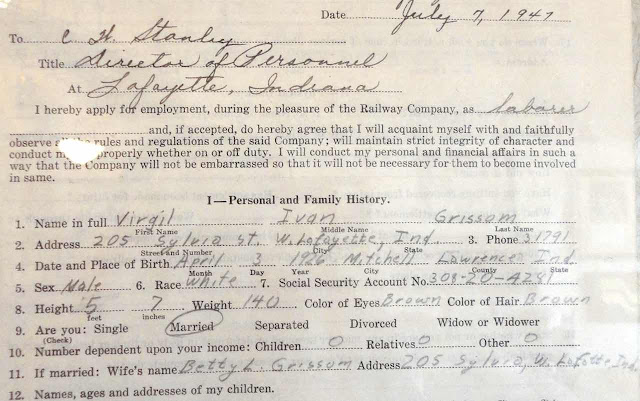 Date July 7, 1947
To C W. Stanley
Title Director of Personnel
At Lafayette, Indiana
I hereby apply for employment, during the pleasure of the Railway Company, as laborer
and, if accepted, do hereby agree that I will acquaint myself with and faithfully
observe rules and regulations of the said Company; will maintain strict integrity of character and
conduct properly whether on or off duty. I will conduct my personal and financial affairs in such a
way that the Company will not be embarrassed so that it will not be necessary for them to become involved
in same.
I—Personal and Family History.
1. Name in full Virgil Ivan Grissom
First Name Middle Name Last Name
2. Address 205 Sylvia St. W. Lafayette, Ind. 3. Phone 31791
Street and Number City State
4. Date and Place of Birth April 3 1926 Mitchell Lawrence Ind.
Month Day Year City County State
5. Sex Male 6. Race White 7. Social Security Account No. 308-20-4281
8. Height 5 7 Weight 140 Color of Eyes Brown Color of Hair Brown
feet inches
9. Are you: Single Married Separated Divorced Widow or Widower
(Check)
10. Number dependent upon your income: Children 0 Relatives 0 Other 0
11. If married: Wife's name Betty L. Grissom Address 205 Sylvia, W. Lafayette Ind.
12. Names, ages and addresses of my children.